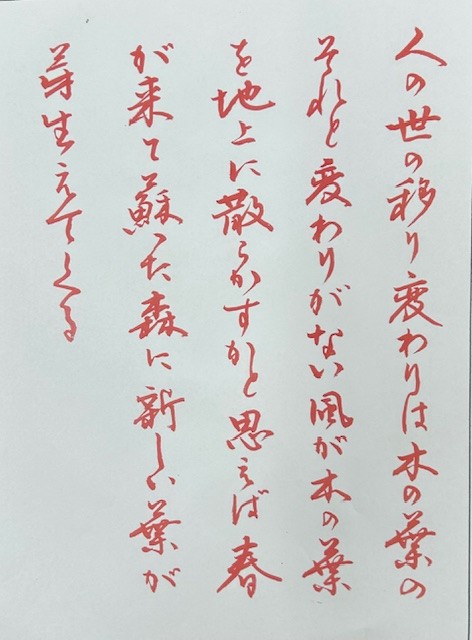 人の世の移り変わりは木の葉の
それと変わりがない風が木の葉
を地上に散らかすかと思えば春
が来て蘇った森に新しい葉が
芽生えてくる